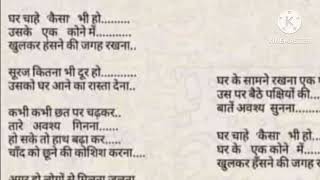 घर चाहे 'कैसा' भी हो.........
उसके एक कोने में............
खुलकर हंसने की जगह रखना..
सूरज कितना भी दूर हो............
उसको घर आने का रास्ता देना..
कभी कभी छत पर चढ़कर..
तारे अवश्य गिनना.......
हो सके तो हाथ बढ़ा कर.....
चाँद को छूने की कोशिश करना....
अगर हो लोगों से मिलना जुलना
घर के सामने रखना एक
उस पर बैठे पक्षियों की
बातें अवश्य सुनना........
घर चाहे 'कैसा' भी हो...
घर के एक कोने में
खुलकर हँसने की जगह
KINEMASTER